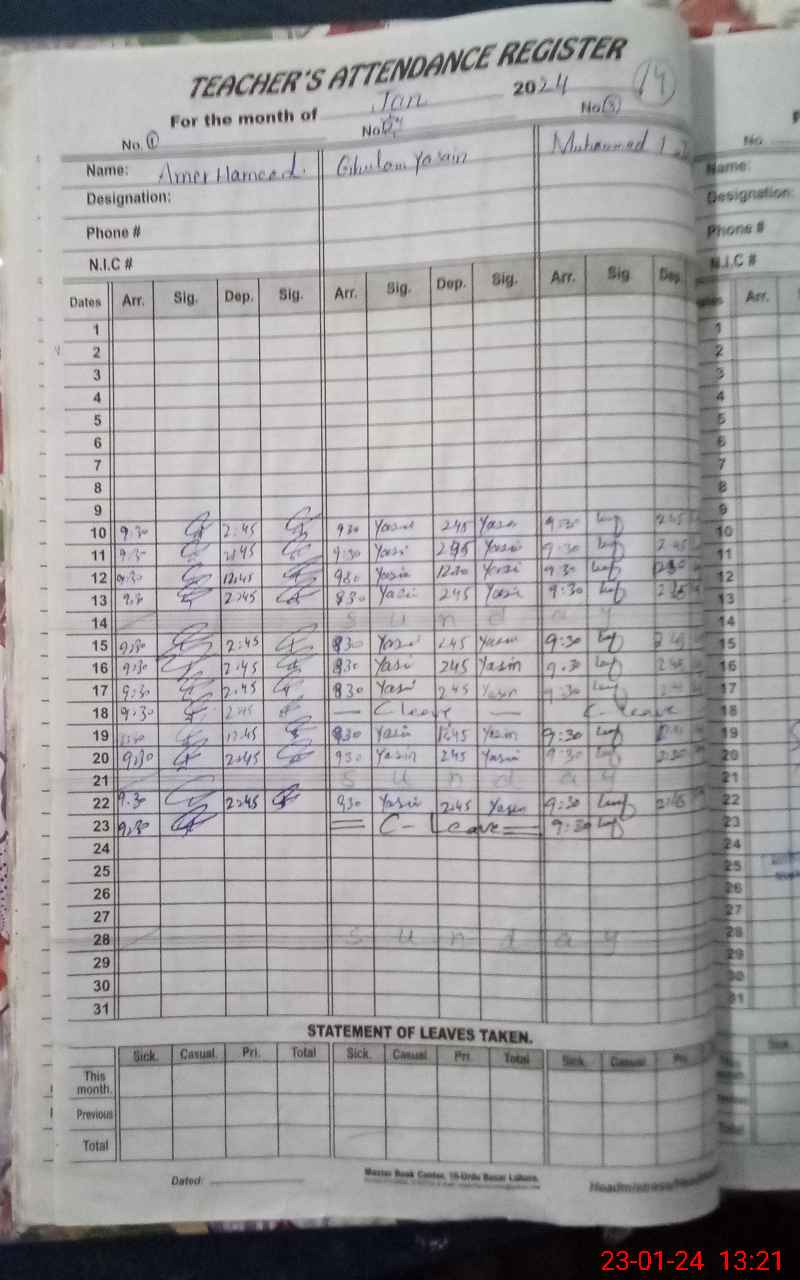 TEACHER'S ATTENDANCE REGISTER
For the month of Jan 2024 14
No. 1 No. No. 3
Name: Amer Hameed. Ghulam Yasin Muhammad
Designation:
Phone #
N.I.C #
Dates Arr. Sig. Dep. Sig. Arr. Sig. Dep. Sig. Arr. Sig. Dep.
1
2
3
4
5
6
7
8
9
10 9:30 2:45 930 Yasin 245 Yasin 9:30 245
11 9:30 2:45 9:30 Yasin 245 Yasin 9:30 245
12 9:30 12:45 930 Yasin 12:30 Yasin 9:30
13 2:45 830 Yasin 245 Yasin 9:30
14 Sunday
15 9:30 2:45 830 Yasin 245 Yasin 9:30 245
16 9:30 2:45 830 Yasin 245 Yasin 9:30 245
17 9:30 2:45 830 Yasin 245 Yasin 9:30
18 9:30 2:45 — C leave — C-leave
19 12:45 930 Yasin 12:45 Yasin 9:30
20 9:30 2:45 930 Yasin 245 Yasin 9:30
21 Sunday
22 9:30 2:45 930 Yasin 2:45 Yasin 9:30 2:45
23 9:30 = C-Leave = 9:30
24
25
26
27
28 Sunday
29
30
31
STATEMENT OF LEAVES TAKEN.
Sick. Casual. Pri. Total Sick. Casual Pri. Total Sick. Casual Pri.
This month.
Previous
Total
Dated:
Master Book Center, 16-Urdu Bazar Lahore.
Headmistress/Head
No
Name:
Designation:
Phone #
N.I.C #
Arr.
1
2
3
4
5
6
7
8
9
10
11
12
13
14
15
16
17
18
19
20
21
22
23
24
25
26
27
28
29
30
31
Sick.
23-01-24 13:21